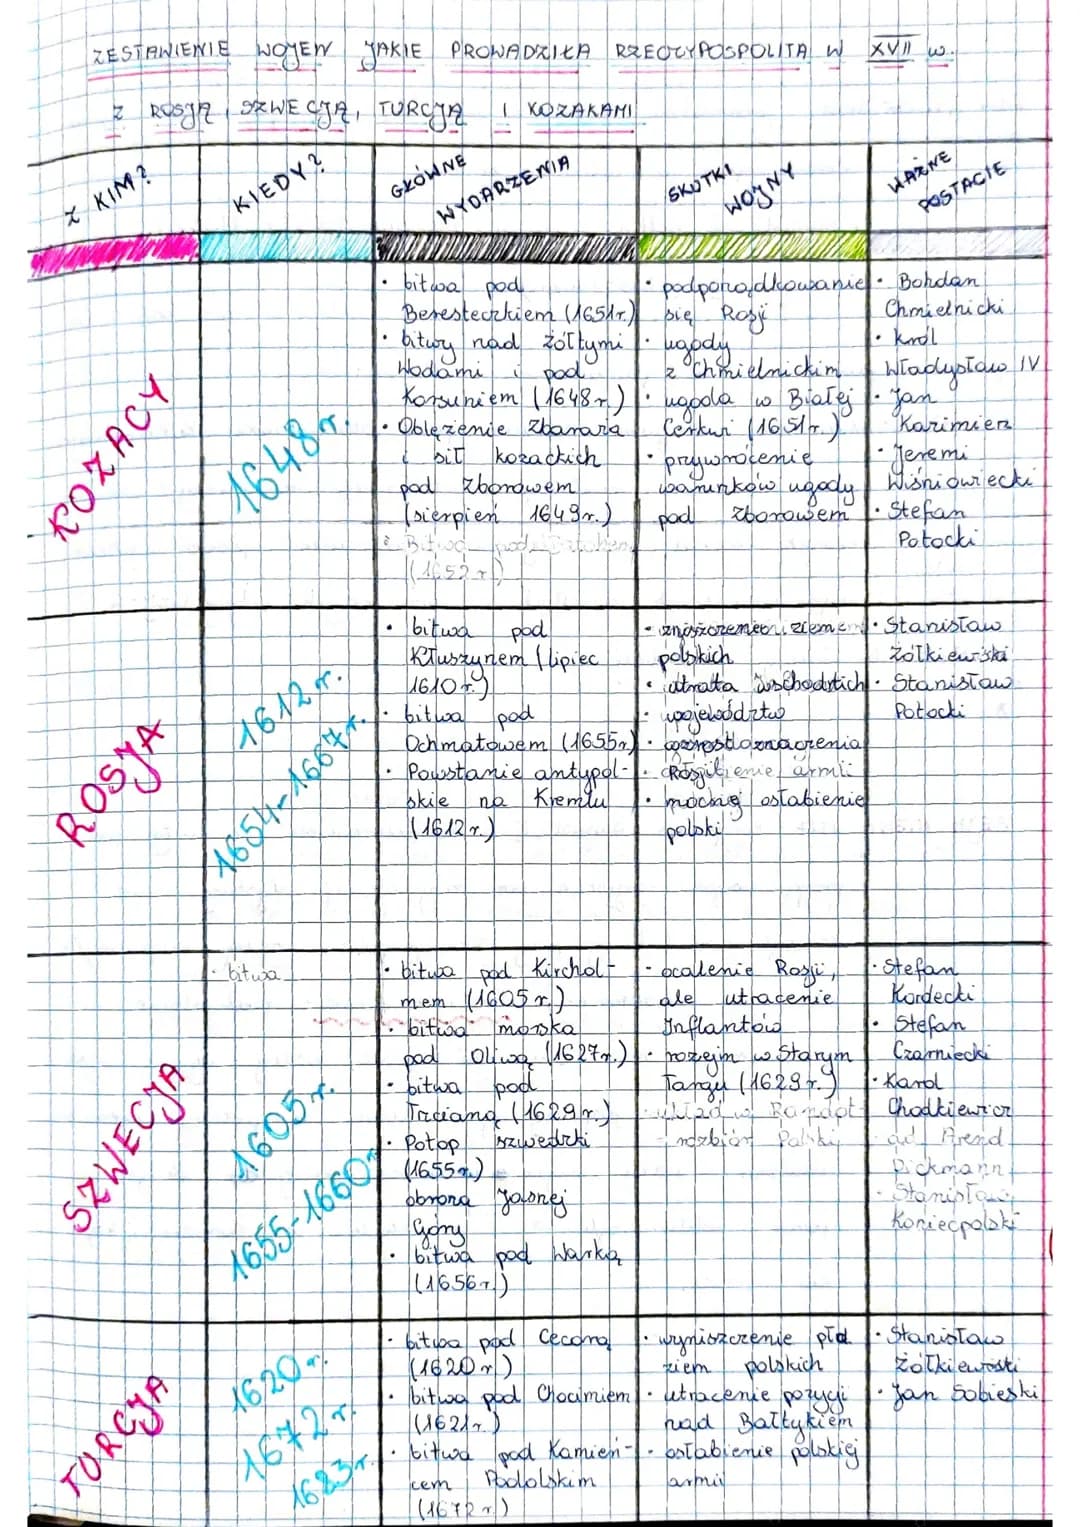 ZESTAWIENIE WOJEN JAKIE PROWADZIŁA RZECZYPOSPOLITA W XVII w.
Z ROSJĄ, SZWECJĄ, TURCJĄ I KOZAKAMI
Z KIM?
KIEDY?
GŁÓWNE
WYDARZENIA
SKUTKI
WOJNY
WAŻNE
POSTACIE
KOZACY
1648 r.
• bitwa pod
Beresteczkiem (1651r.)
• bitwy nad żółtymi
Wodami i pod
Korsuniem (1648 r.)
• Oblężenie Zbaraża
i sił kozackich
pod Zborowem
(sierpień 1649r.)
• Bitwa pod Batohem
(1652 r.)
• podporządkowanie
się Rosji
• ugody
z Chmielnickim
• ugoda w Białej
Cerkwi (1651r.)
• przywrócenie
warunków ugody
pod Zborowem
• Bohdan
Chmielnicki
• król
Władysław IV
• Jan
Kazimierz
• Jeremi
Wiśniowiecki
• Stefan
Potocki
ROSJA
1612 r.
1654-1667 r.
• bitwa pod
Kłuszynem (lipiec
1610 r.)
• bitwa pod
Ochmatowem (1655r.)
• Powstanie antypol-
skie na Kremlu
(1612 r.)
polskich
• utrata wschodnich
• województw
•
• Rozbicie armii
• mocnię osłabienie
polski
• Stanisław
Żółkiewski
• Stanisław
Potocki
SZWECJA
• bitwa
1605 r.
1655-1660r.
• bitwa pod Kirchol-
mem (1605 r.)
• bitwa morska
pod Oliwą (1627r.)
• bitwa pod
Trzcianą (1629 r.)
• Potop szwedzki
(1655r.)
obrona Jasnej
Góry
• bitwa pod Warką
(1656 r.)
• ocalenie Rosji,
ale utracenie
Inflantów
• rozejm w Starym
Targu (1629 r.)
• układ w Radnot
- rozbiór Polski
• Stefan
Kordecki
• Stefan
Czarniecki
• Karol
Chodkiewicz
• Arend
Dickmann
• Stanisław
Koniecpolski
TURCJA
1620 r.
1672 r.
1683 r.
• bitwa pod Cecorą
(1620 r.)
• bitwa pod Chocimiem
(1621 r.)
• bitwa pod Kamień-
cem Podolskim
(1672 r.)
• wyniszczenie płd.
ziem polskich
• utracenie pozycji
nad Bałtykiem
• osłabienie polskiej
armii
• Stanisław
Żółkiewski
• Jan Sobieski